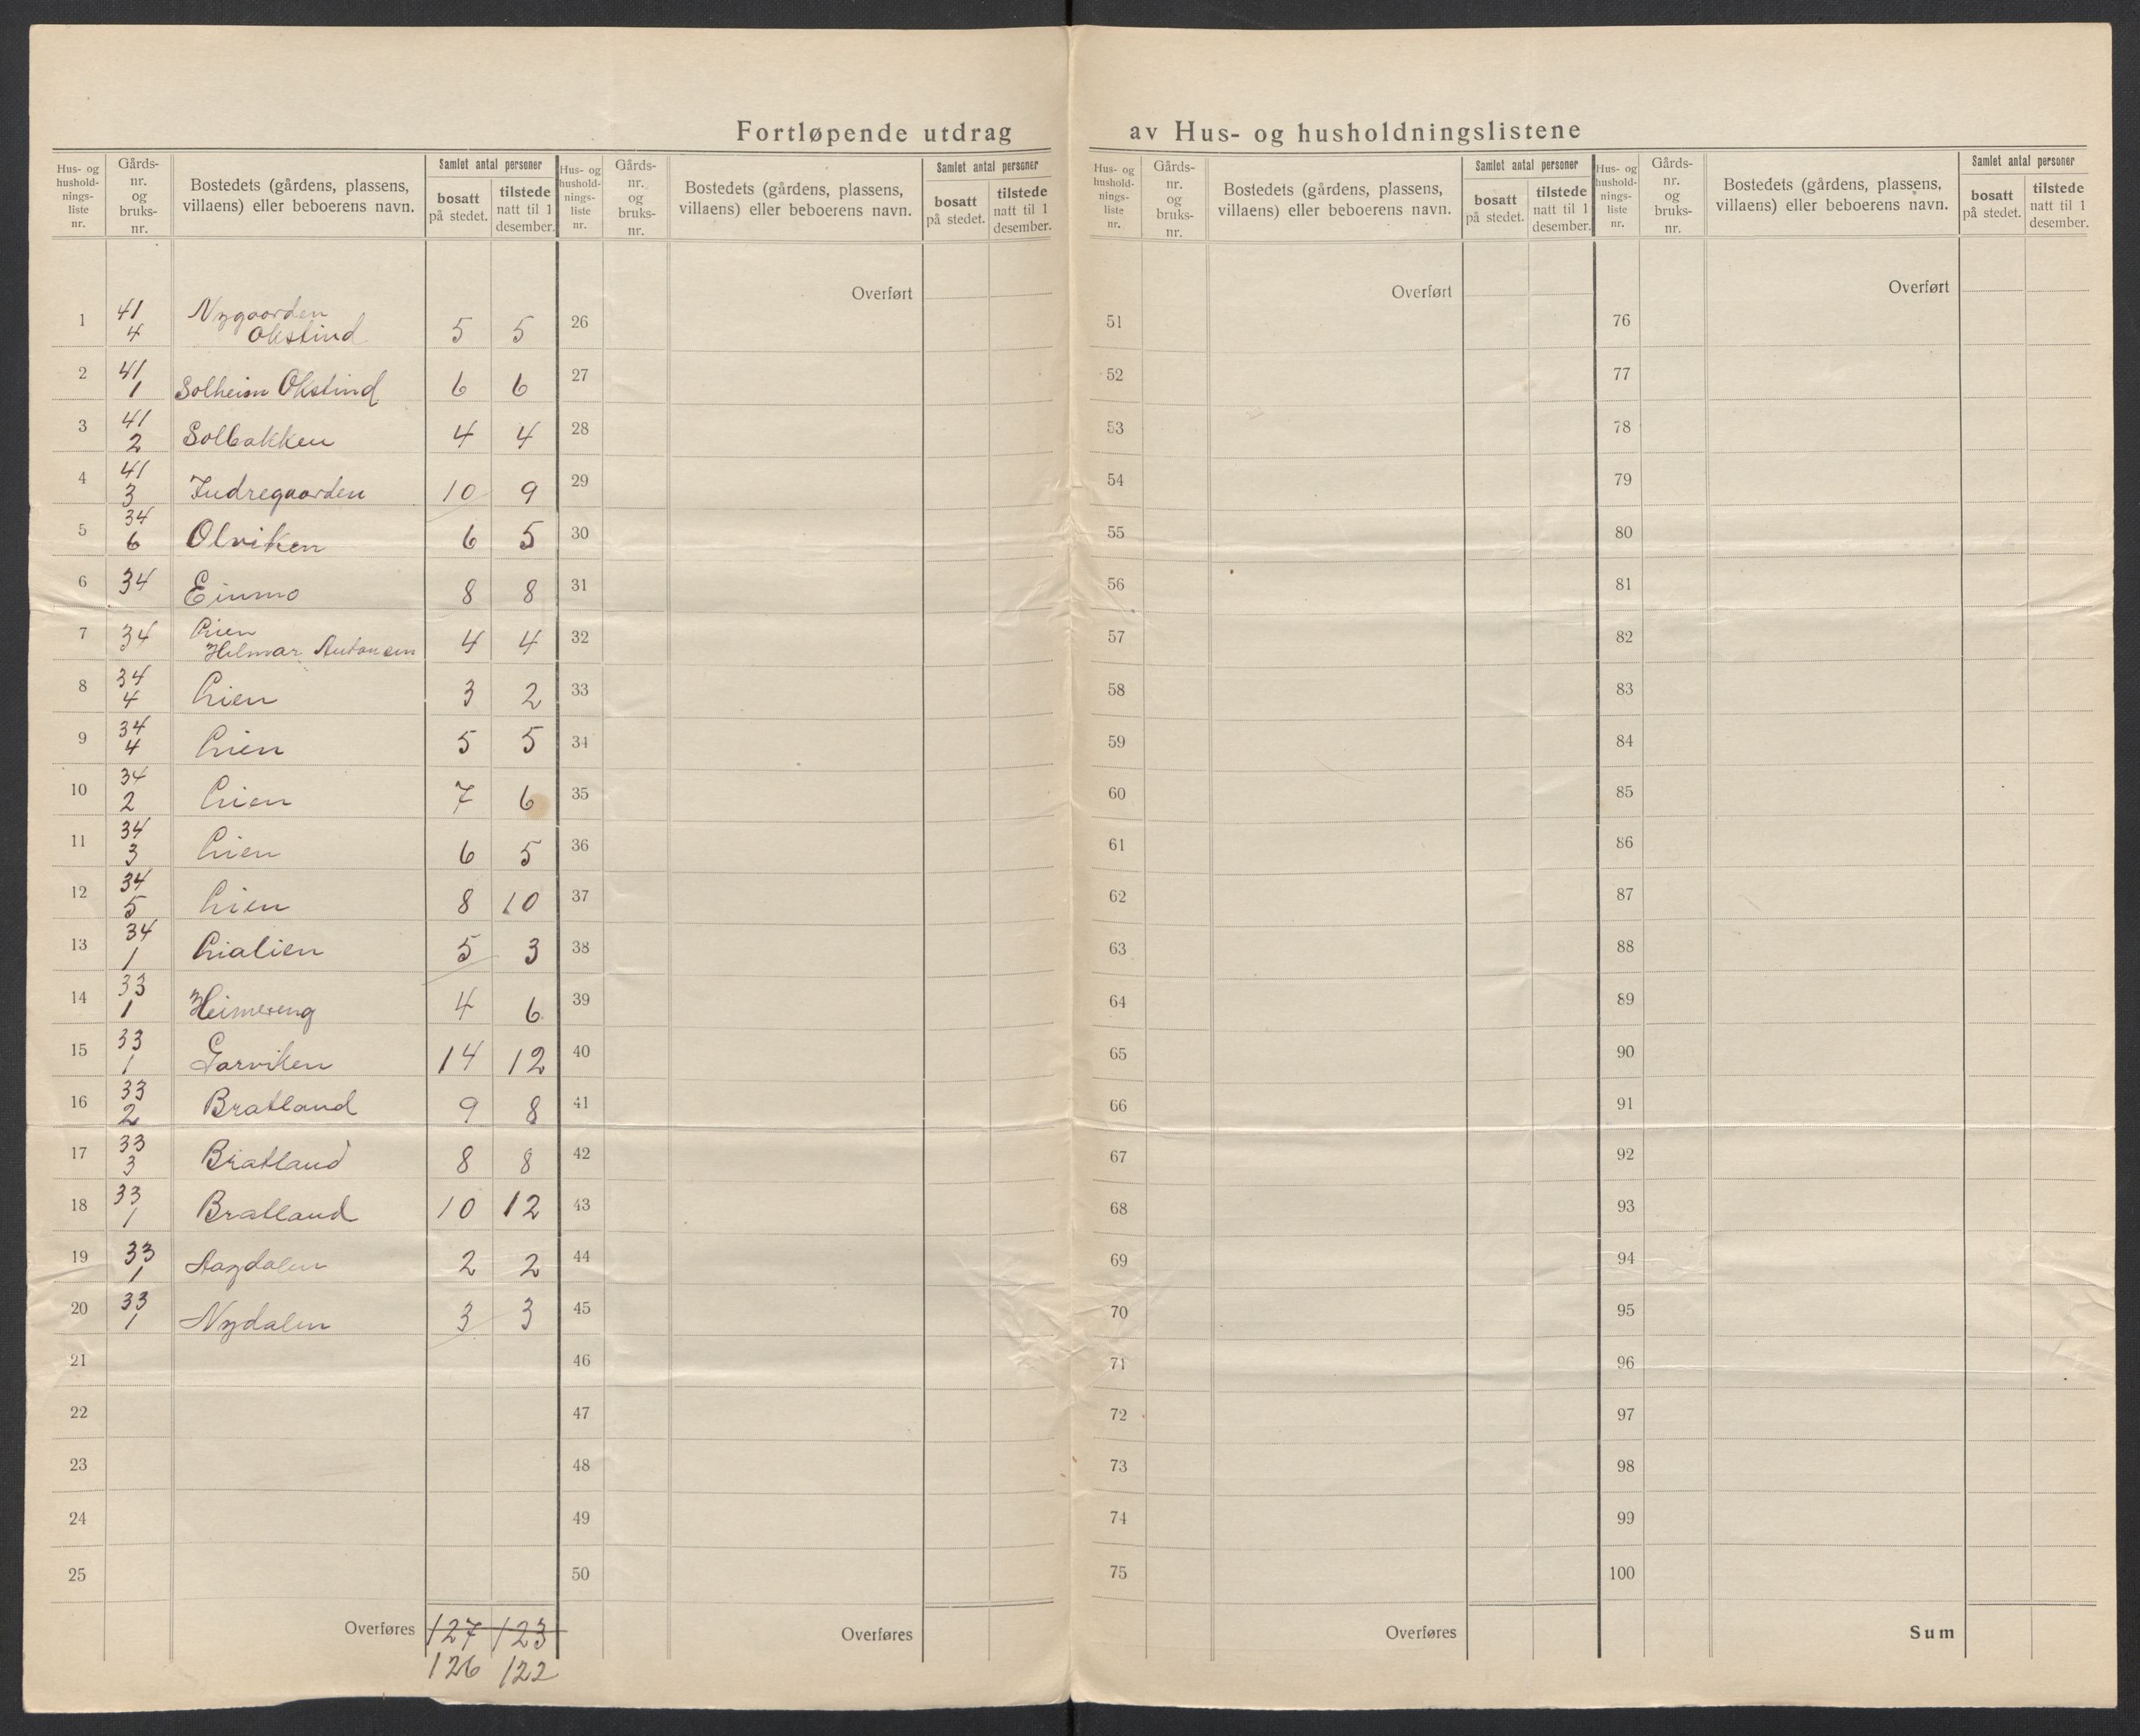 Fortløpende utdrag av Hus- og husholdningslistene
Hus- og hushold-nings-liste nr.
Gårds-nr. og bruks-nr.
Bostedets (gårdens, plassens, villaens) eller beboerens navn.
Samlet antal personer
bosatt på stedet.
tilstede natt til 1 desember.
Hus- og hushold-nings-liste nr.
Gårds-nr. og bruks-nr.
Bostedets (gårdens, plassens, villaens) eller beboerens navn.
Samlet antal personer
bosatt på stedet.
tilstede natt til 1 desember.
Hus- og hushold-nings-liste nr.
Gårds-nr. og bruks-nr.
Bostedets (gårdens, plassens, villaens) eller beboerens navn.
Samlet antal personer
bosatt på stedet.
tilstede natt til 1 desember.
Hus- og hushold-nings-liste nr.
Gårds-nr. og bruks-nr.
Bostedets (gårdens, plassens, villaens) eller beboerens navn.
Samlet antal personer
bosatt på stedet.
tilstede natt til 1 desember.
1 41 4 Nygaarden Okstind 5 5
2 41 1 Solheim Okstind 6 6
3 41 2 Solbakken 4 4
4 41 3 Indregaarden 10 9
5 34 6 Olviken 6 5
6 34 Einmo 8 8
7 34 Lien Hilmar Antonsen 4 4
8 34 4 Lien 3 2
9 34 4 Lien 5 5
10 34 2 Lien 7 6
11 34 3 Lien 6 5
12 34 5 Lien 8 10
13 34 1 Lialien 5 3
14 33 1 Heimereng 4 6
15 33 1 Garviken 14 12
16 33 2 Bratland 9 8
17 33 3 Bratland 8 8
18 33 1 Bratland 10 12
19 33 1 2 2
20 33 1 Nydalen 3 3
21
22
23
24
25
Overføres 127 123
126 122
Overført
26
27
28
29
30
31
32
33
34
35
36
37
38
39
40
41
42
43
44
45
46
47
48
49
50
Overføres
Overført
51
52
53
54
55
56
57
58
59
60
61
62
63
64
65
66
67
68
69
70
71
72
73
74
75
Overføres
Overført
76
77
78
79
80
81
82
83
84
85
86
87
88
89
90
91
92
93
94
95
96
97
98
99
100
Sum